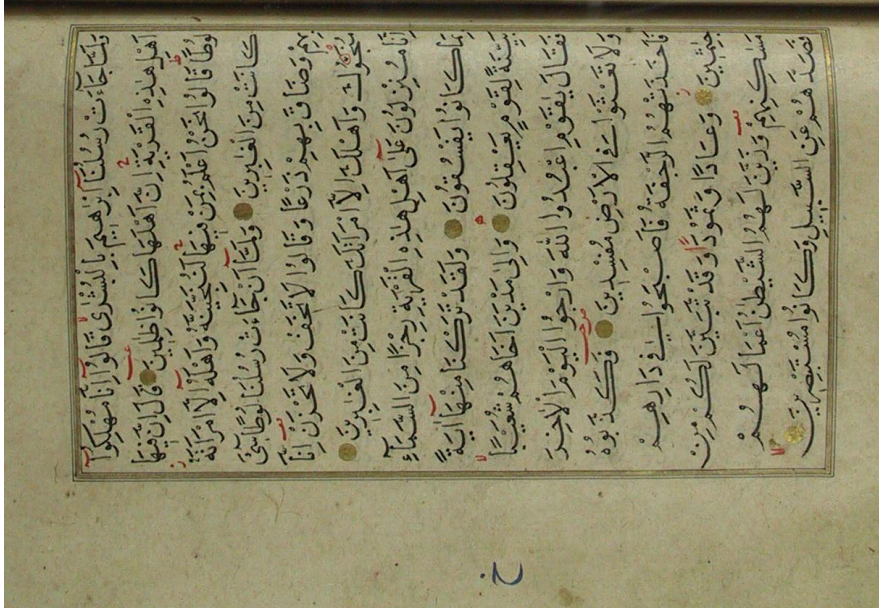 وَلَمَّا جَاءَتْ رُسُلُنَا اِبْرٰهِيمَ بِالْبُشْرٰى قَالُوا اِنَّا مُهْلِكُوا
اَهْلِ هٰذِهِ الْقَرْيَةِ اِنَّ اَهْلَهَا كَانُوا ظٰلِمِينَ قَالَ اِنَّ فِيهَا
لُوطًا قَالُوا نَحْنُ اَعْلَمُ بِمَنْ فِيهَا لَنُنَجِّيَنَّهُ وَاَهْلَهُ اِلَّا امْرَاَتَهُ
كَانَتْ مِنَ الْغٰبِرِينَ وَلَمَّا اَنْ جَاءَتْ رُسُلُنَا لُوطًا سِيءَ
بِهِمْ وَضَاقَ بِهِمْ ذَرْعًا وَقَالُوا لَا تَخَفْ وَلَا تَحْزَنْ اِنَّا
مُنَجُّوكَ وَاَهْلَكَ اِلَّا امْرَاَتَكَ كَانَتْ مِنَ الْغٰبِرِينَ
اِنَّا مُنْزِلُونَ عَلٰى اَهْلِ هٰذِهِ الْقَرْيَةِ رِجْزًا مِنَ السَّمَاءِ
بِمَا كَانُوا يَفْسُقُونَ وَلَقَدْ تَرَكْنَا مِنْهَا اٰيَةً
بَيِّنَةً لِقَوْمٍ يَعْقِلُونَ وَاِلٰى مَدْيَنَ اَخَاهُمْ شُعَيْبًا
فَقَالَ يٰقَوْمِ اعْبُدُوا اللهَ وَارْجُوا الْيَوْمَ الْاٰخِرَ
وَلَا تَعْثَوْا فِي الْاَرْضِ مُفْسِدِينَ فَكَذَّبُوهُ
فَاَخَذَتْهُمُ الرَّجْفَةُ فَاَصْبَحُوا فِي دَارِهِمْ
جٰثِمِينَ وَعَادًا وَثَمُودَا وَقَدْ تَبَيَّنَ لَكُمْ مِنْ
مَسٰكِنِهِمْ وَزَيَّنَ لَهُمُ الشَّيْطٰنُ اَعْمَالَهُمْ
فَصَدَّهُمْ عَنِ السَّبِيلِ وَكَانُوا مُسْتَبْصِرِينَ